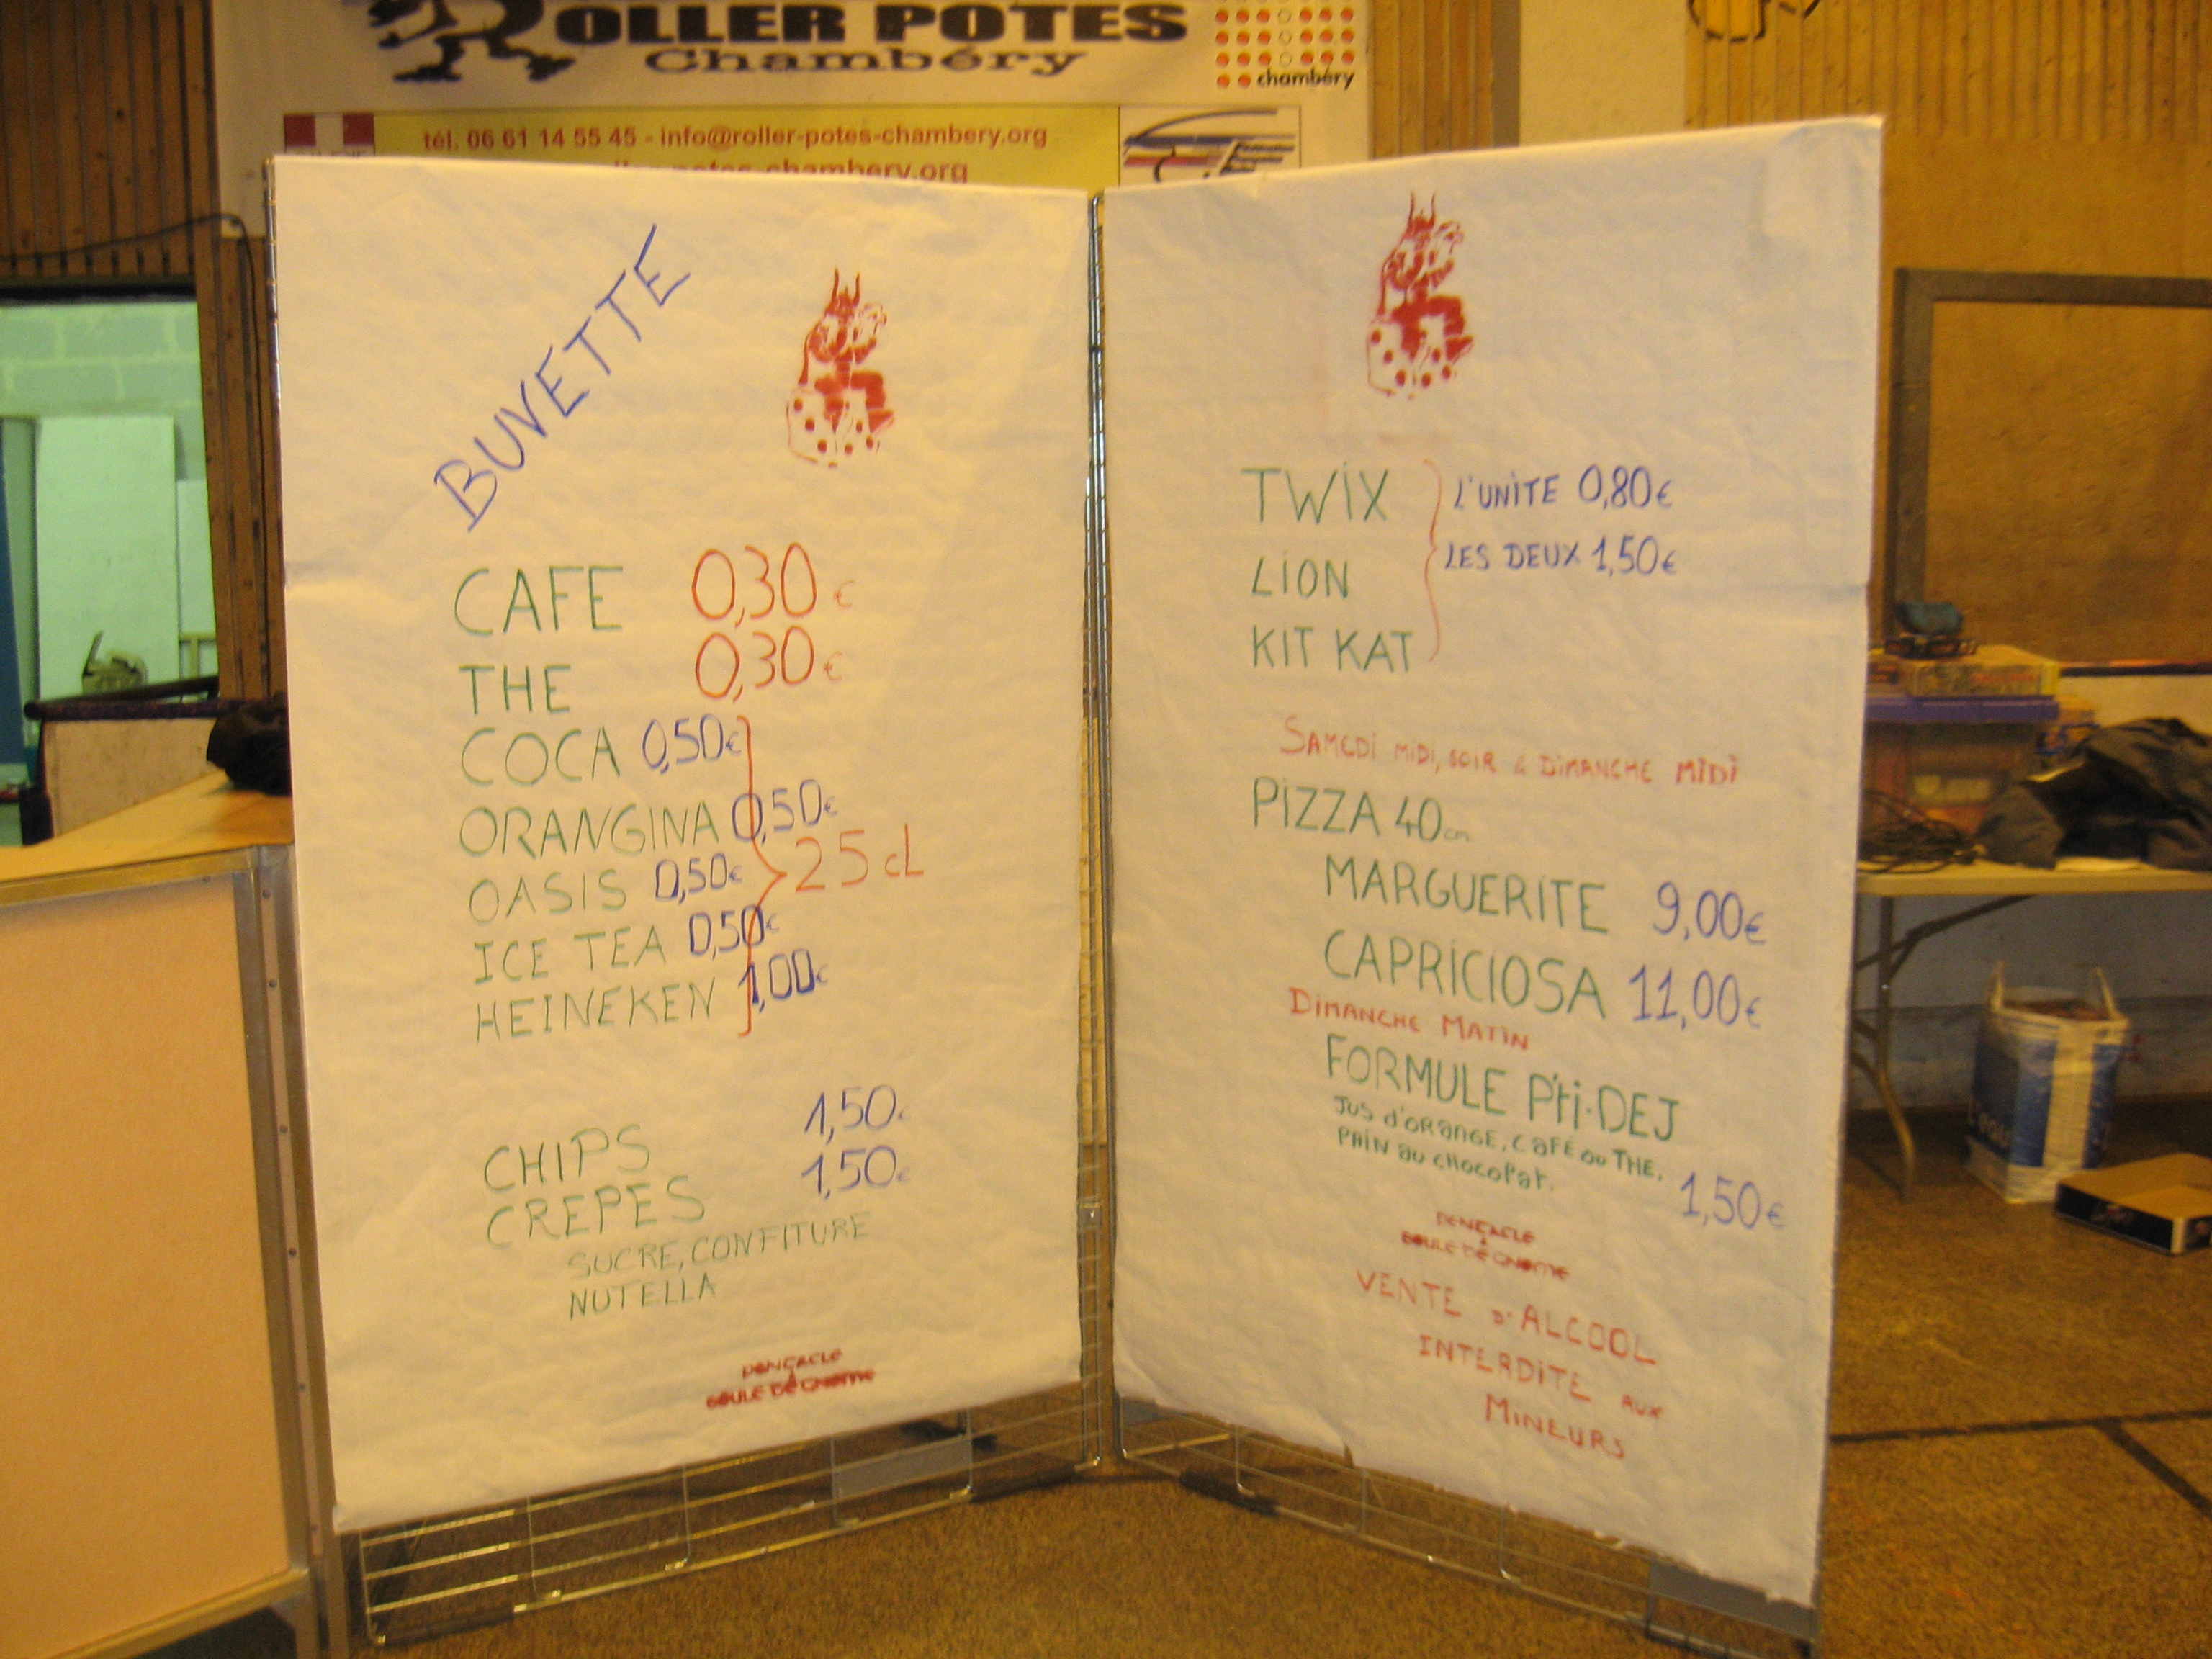 ROLLER POTES
Chambéry
chambéry
tél. 06 61 14 55 45 - info@roller-potes-chambery.org
ller-potes-chambery.org
BUVETTE
CAFE 0,30€
THE 0,30€
COCA 0,50€
ORANGINA 0,50€
OASIS 0,50€
ICE TEA 0,50€
HEINEKEN 1,00€
25 cL
CHIPS 1,50€
CREPES 1,50€
SUCRE, CONFITURE
NUTELLA
PENTACLE
&
BOULE DE GNOME
TWIX
LION
KIT KAT
L'UNITE 0,80€
LES DEUX 1,50€
SAMEDI MIDI, SOIR & DIMANCHE MIDI
PIZZA 40cm
MARGUERITE 9,00€
CAPRICIOSA 11,00€
DIMANCHE MATIN
FORMULE P'ti-DEJ
JUS d'ORANGE, CAFÉ ou THE,
PAIN au CHOCOLAT. 1,50€
PENTACLE
&
BOULE DE GNOME
VENTE D'ALCOOL
INTERDITE AUX
MINEURS